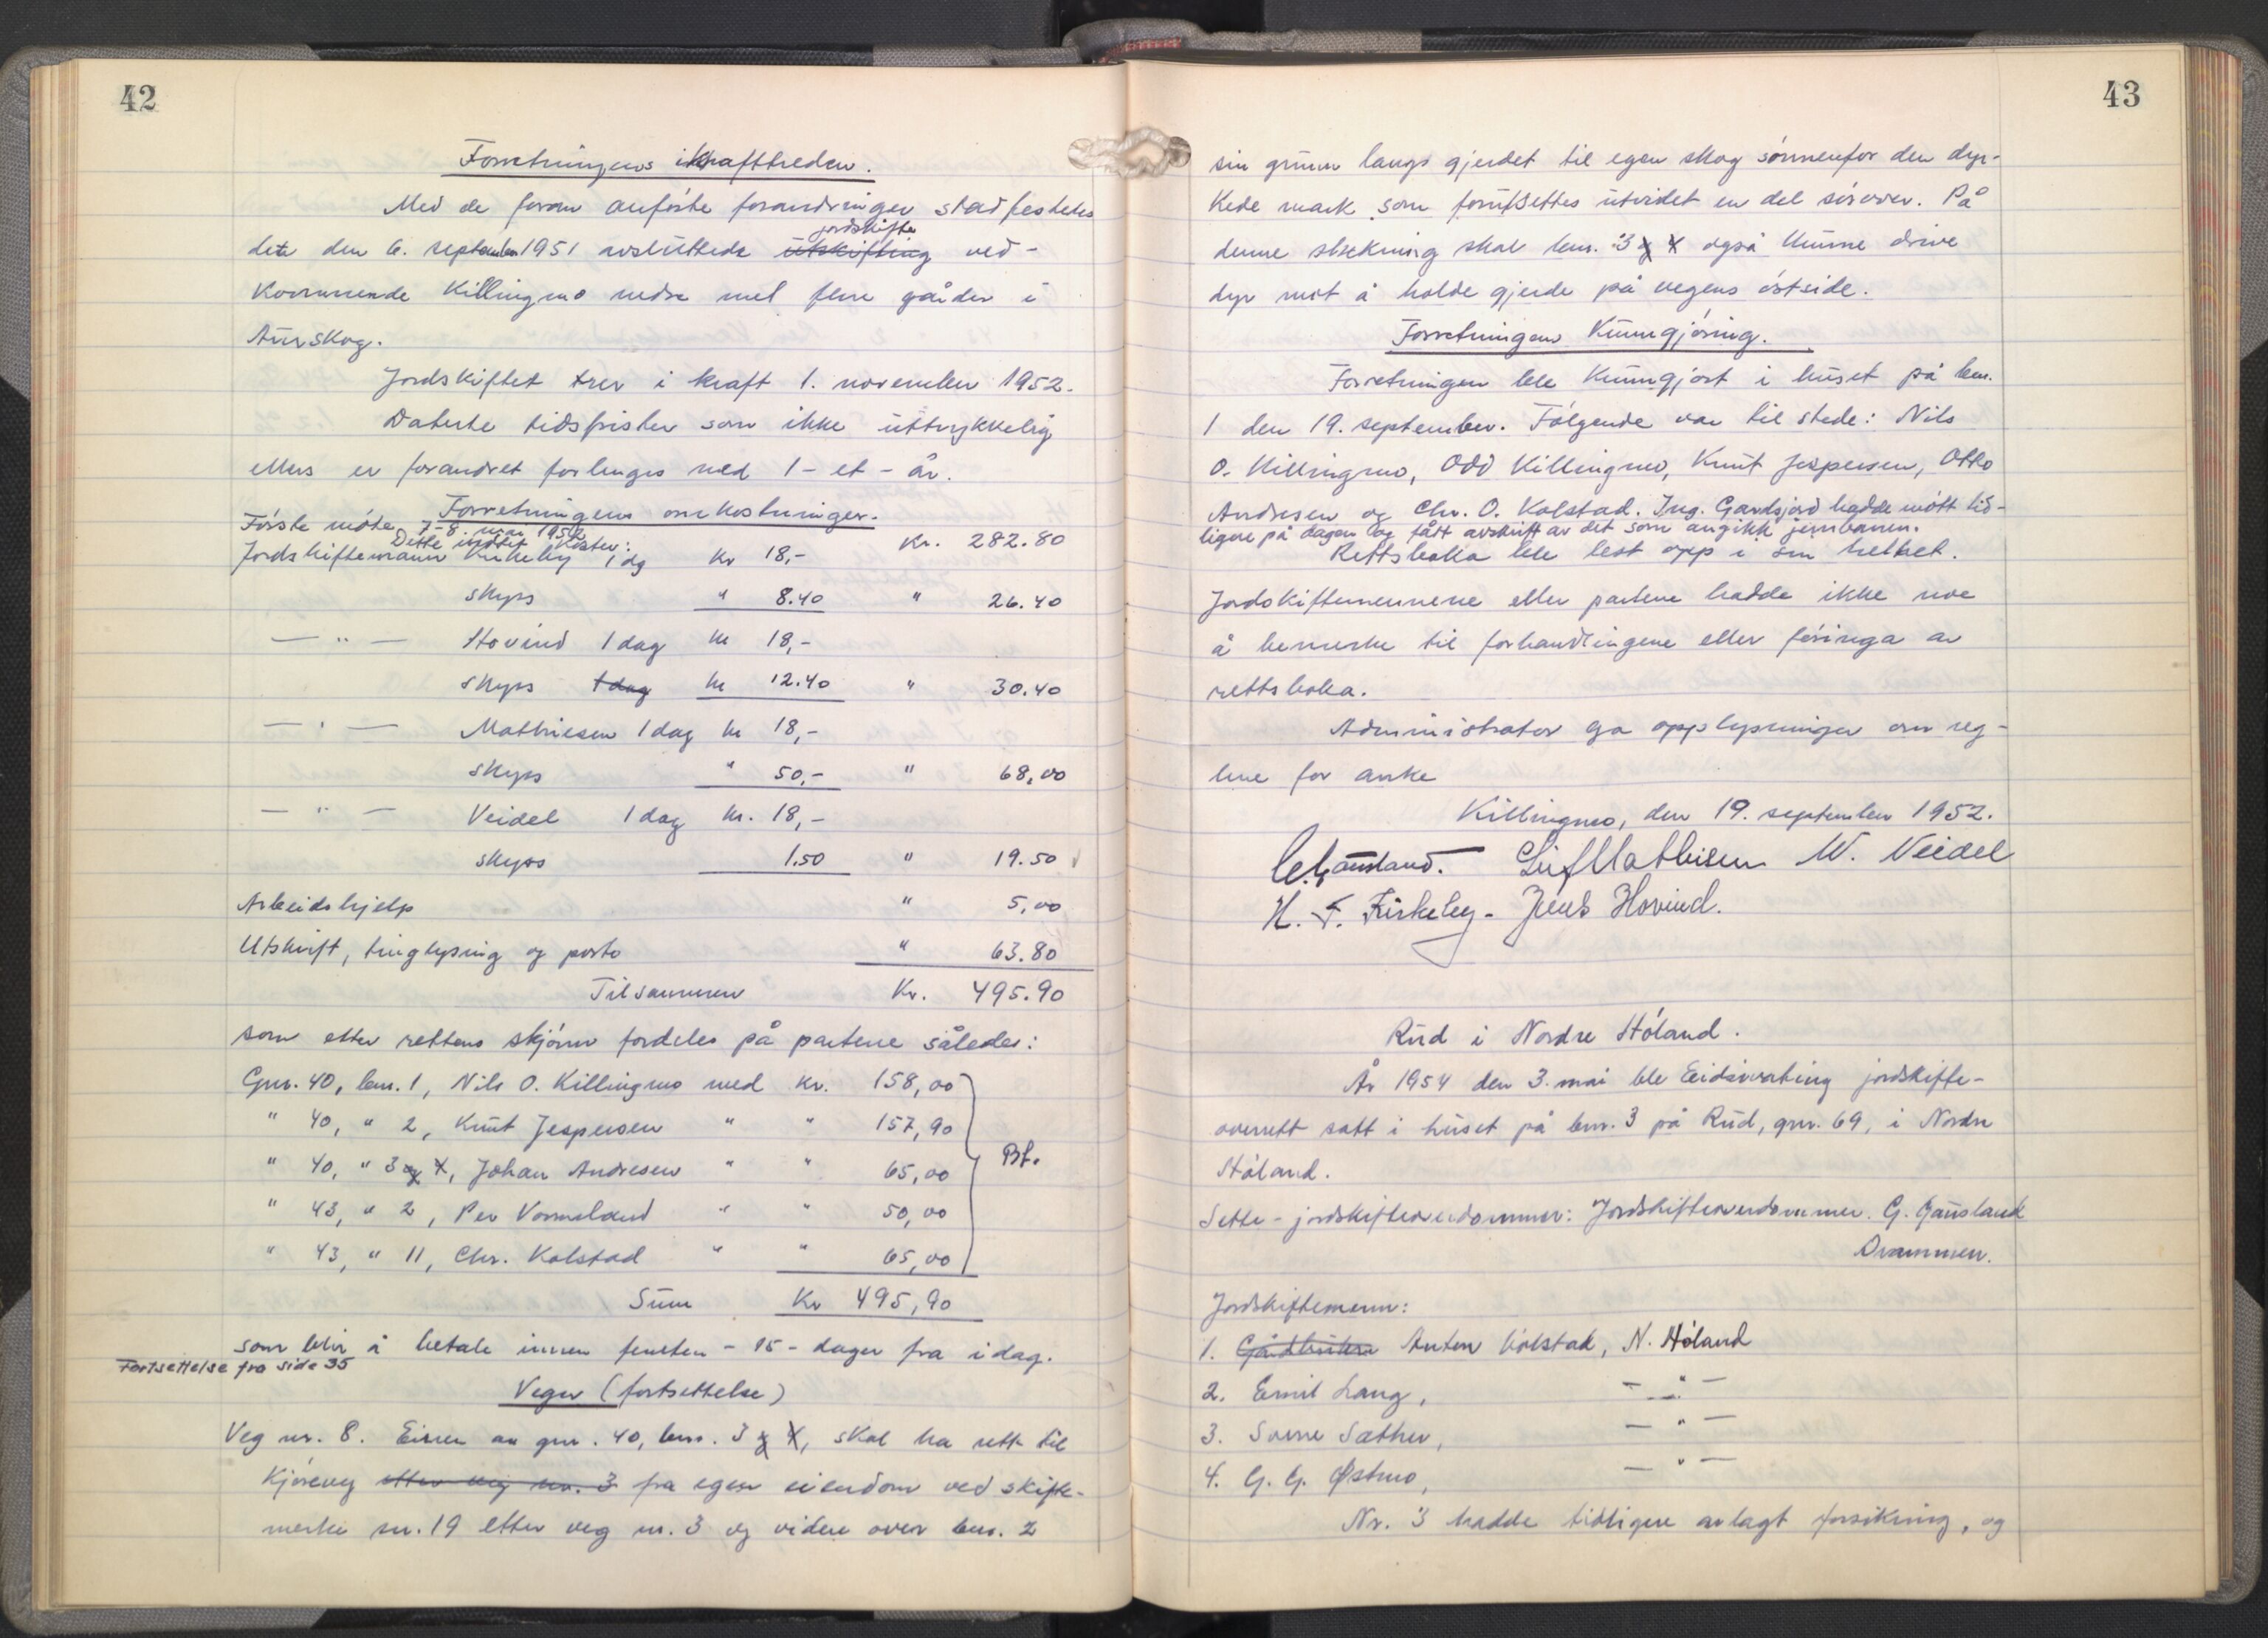 42
Forretningens ikrafttreden.
Med de foran anførte forandringer stadfestes
det den 6. september 1951 avsluttede utskifting jordskifte ved-
kommende Killingmo nedre mel flere gårder i
Aurskog.
Jordskiftet trer i kraft 1. november 1952.
Daterte tidsfrister som ikke uttrykkelig
ellers er forandret forlenges med 1 - et - år.
Forretningens omkostninger.
Første møte 7-8. mai 1952 Kr. 282.80
Dette møtet koster:
Jordskiftemann Kirkeby 1 dg kr 18,-
skyss " 8.40 " 26.40
— " — Hovind 1 dag kr 18,-
skyss 1 dag kr 12.40 " 30.40
— " — Mathiesen 1 dag kr 18,-
skyss " 50,- " 68,00
— " — Veidel 1 dag kr. 18,-
skyss 1.50 " 19.50
Arbeidshjelp " 5,00
Utskrift, tinglysing og porto " 63.80
Tilsammen Kr. 495.90
som etter rettens skjønn fordeles på partene således:
Gnr. 40, bnr. 1, Nils O. Killingmo med kr. 158,00
" 40, " 2, Knut Jespersen " " 157,90
" 40, " 3 og 4, Johan Andresen " " 65,00 Bt.
" 43, " 2, Per Vormeland " " 50,00
" 43, " 11, Chr. Kolstad " " 65,00
Sum Kr 495,90
som blir å betale innen femten - 15 - dager fra idag.
Fortsettelse fra side 35
Veger (fortsettelse)
Veg nr. 8. Eieren av gnr. 40, bnr. 3 og 4, skal ha rett til
kjøreveg etter veg nr. 3 fra egen eiendom ved skifte-
merke nr. 19 etter veg nr. 3 og videre over bnr. 2
43
sin grunn langs gjerdet til egen skog sønnenfor den dyr-
kede mark som forutsettes utvidet en del sørover. På
denne strekning skal bnr. 3 og 4 også kunne drive
dyr mot å holde gjerde på vegens østside.
Forretningens kunngjøring.
Forretningen ble kunngjort i huset på bnr.
1 den 19. september. Følgende var til stede: Nils
O. Killingmo, Odd Killingmo, Knut Jespersen, Otto
Andresen og Chr. O. Kolstad. Ing. Gardsjord hadde møtt tid-
ligere på dagen og fått avskrift av det som angikk jernbanen.
Rettsboka ble lest opp i sin helhet.
Jordskiftemennene eller partene hadde ikke noe
å bemerke til forhandlingene eller føringa av
rettsboka.
Administrator ga opplysninger om reg-
lene for anke
Killingmo, den 19. september 1952.
G. Gausland. Leif Mathisen W. Veidel
H. F. Kirkeby - Jens Hovind.
Rud i Nordre Høland.
År 1954 den 3. mai ble Eidsivating jordskifte-
overrett satt i huset på bnr. 3 på Rud, gnr. 69, i Nordre
Høland.
Sette-jordskifteoverdommer: Jordskifteoverdommer G. Gausland
Drammen.
Jordskiftemenn:
1. Gårdbruker Anton Kolstad, N. Høland
2. Emil Lang, — " —
3. Sverre Sæther, — " —
4. G. G. Østmo, — " —
Nr. 3 hadde tidligere avlagt forsikring, og